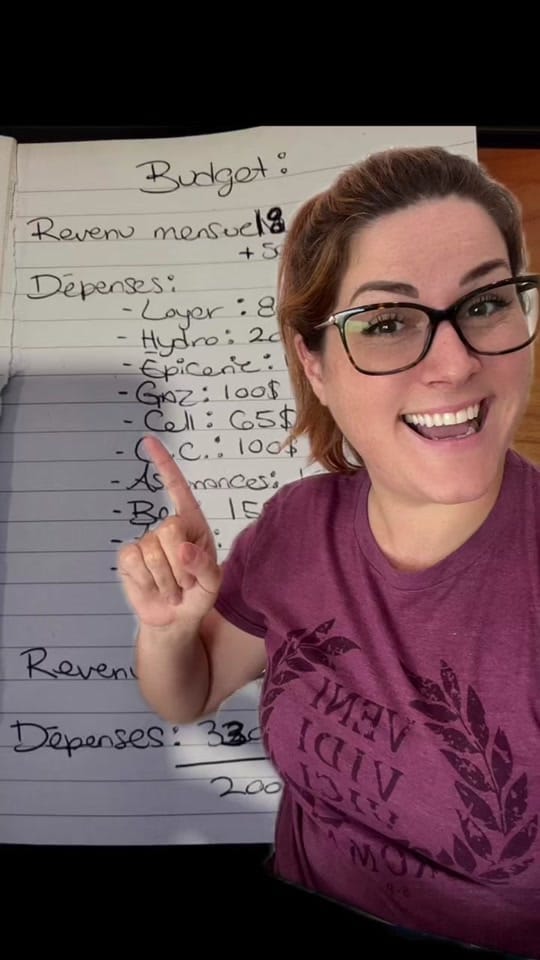 Budget:
Revenu mensuel 18
+ 5
Dépenses:
- Loyer : 8
- Hydro : 20
- Épicerie :
- Gaz : 100$
- Cell : 65$
- C.C. : 100$
- As mances:
- Be 15
Revenu
Dépenses : 33
200
VENI
VIDI
VICI
ROMA